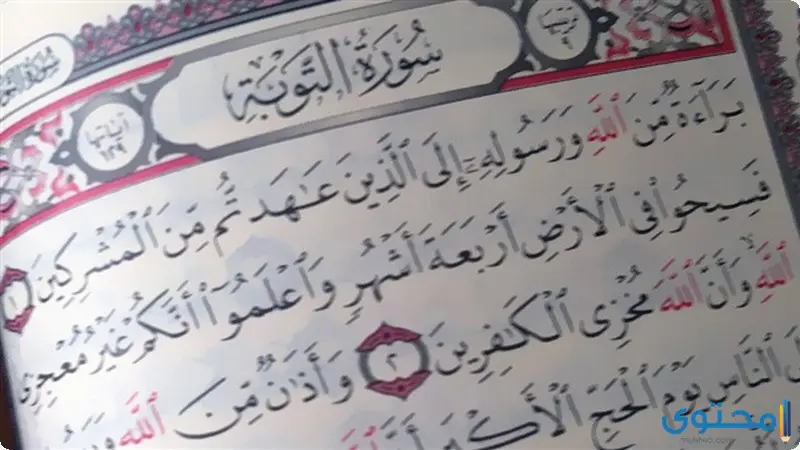 ترتيبها ٩
سُورَةُ التَّوْبَةِ
آياتها ١٢٩
بَرَآءَةٌ مِّنَ ٱللَّهِ وَرَسُولِهِۦٓ إِلَى ٱلَّذِينَ عَٰهَدتُّم مِّنَ ٱلْمُشْرِكِينَ ١
فَسِيحُوا۟ فِى ٱلْأَرْضِ أَرْبَعَةَ أَشْهُرٍ وَٱعْلَمُوٓا۟ أَنَّكُمْ غَيْرُ مُعْجِزِى
ٱللَّهِ ۙ وَأَنَّ ٱللَّهَ مُخْزِى ٱلْكَٰفِرِينَ ٢ وَأَذَٰنٌ مِّنَ ٱللَّهِ
ٱلنَّاسِ يَوْمَ ٱلْحَجِّ ٱلْأَكْبَرِ
محتوى